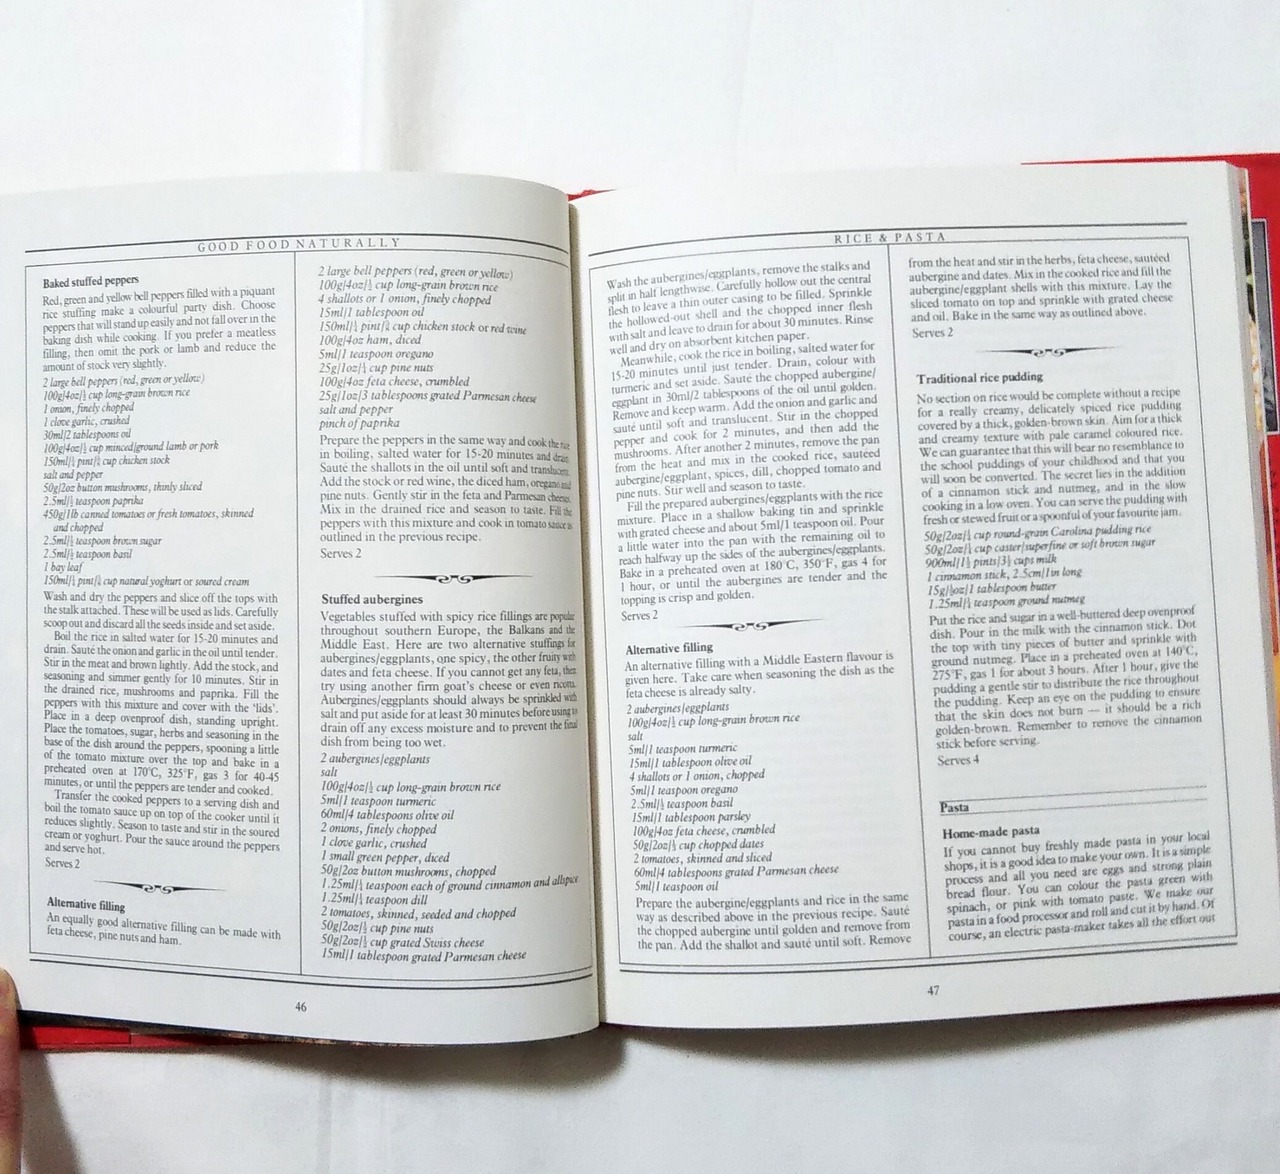 GOOD FOOD NATURALLY
Baked stuffed peppers
Red, green and yellow bell peppers filled with a piquant
rice stuffing make a colourful party dish. Choose
peppers that will stand up easily and not fall over in the
baking dish while cooking. If you prefer a meatless
filling, then omit the pork or lamb and reduce the
amount of stock very slightly.
2 large bell peppers (red, green or yellow)
100g/4oz/½ cup long-grain brown rice
1 onion, finely chopped
1 clove garlic, crushed
30ml/2 tablespoons oil
100g/4oz/½ cup minced/ground lamb or pork
150ml/¼ pint/⅔ cup chicken stock
salt and pepper
50g/2oz button mushrooms, thinly sliced
2.5ml/½ teaspoon paprika
450g/1lb canned tomatoes or fresh tomatoes, skinned
and chopped
2.5ml/½ teaspoon brown sugar
2.5ml/½ teaspoon basil
1 bay leaf
150ml/¼ pint/⅔ cup natural yoghurt or soured cream
Wash and dry the peppers and slice off the tops with
the stalk attached. These will be used as lids. Carefully
scoop out and discard all the seeds inside and set aside.
Boil the rice in salted water for 15-20 minutes and
drain. Sauté the onion and garlic in the oil until tender.
Stir in the meat and brown lightly. Add the stock, and
seasoning and simmer gently for 10 minutes. Stir in
the drained rice, mushrooms and paprika. Fill the
peppers with this mixture and cover with the 'lids'.
Place in a deep ovenproof dish, standing upright.
Place the tomatoes, sugar, herbs and seasoning in the
base of the dish around the peppers, spooning a little
of the tomato mixture over the top and bake in a
preheated oven at 170°C, 325°F, gas 3 for 40-45
minutes, or until the peppers are tender and cooked.
Transfer the cooked peppers to a serving dish and
boil the tomato sauce up on top of the cooker until it
reduces slightly. Season to taste and stir in the soured
cream or yoghurt. Pour the sauce around the peppers
and serve hot.
Serves 2
Alternative filling
An equally good alternative filling can be made with
feta cheese, pine nuts and ham.
2 large bell peppers (red, green or yellow)
100g/4oz/½ cup long-grain brown rice
4 shallots or 1 onion, finely chopped
15ml/1 tablespoon oil
150ml/¼ pint/⅔ cup chicken stock or red wine
100g/4oz ham, diced
5ml/1 teaspoon oregano
25g/1oz/¼ cup pine nuts
100g/4oz feta cheese, crumbled
25g/1oz/3 tablespoons grated Parmesan cheese
salt and pepper
pinch of paprika
Prepare the peppers in the same way and cook the rice
in boiling, salted water for 15-20 minutes and drain.
Sauté the shallots in the oil until soft and translucent.
Add the stock or red wine, the diced ham, oregano and
pine nuts. Gently stir in the feta and Parmesan cheeses.
Mix in the drained rice and season to taste. Fill the
peppers with this mixture and cook in tomato sauce as
outlined in the previous recipe.
Serves 2
Stuffed aubergines
Vegetables stuffed with spicy rice fillings are popular
throughout southern Europe, the Balkans and the
Middle East. Here are two alternative stuffings for
aubergines/eggplants, one spicy, the other fruity with
dates and feta cheese. If you cannot get any feta, then
try using another firm goat's cheese or even ricotta.
Aubergines/eggplants should always be sprinkled with
salt and put aside for at least 30 minutes before using to
drain off any excess moisture and to prevent the final
dish from being too wet.
2 aubergines/eggplants
salt
100g/4oz/½ cup long-grain brown rice
5ml/1 teaspoon turmeric
60ml/4 tablespoons olive oil
2 onions, finely chopped
1 clove garlic, crushed
1 small green pepper, diced
50g/2oz button mushrooms, chopped
1.25ml/¼ teaspoon each of ground cinnamon and allspice
1.25ml/¼ teaspoon dill
2 tomatoes, skinned, seeded and chopped
50g/2oz/½ cup pine nuts
50g/2oz/½ cup grated Swiss cheese
15ml/1 tablespoon grated Parmesan cheese
46
RICE & PASTA
Wash the aubergines/eggplants, remove the stalks and
split in half lengthwise. Carefully hollow out the central
flesh to leave a thin outer casing to be filled. Sprinkle
the hollowed-out shell and the chopped inner flesh
with salt and leave to drain for about 30 minutes. Rinse
well and dry on absorbent kitchen paper.
Meanwhile, cook the rice in boiling, salted water for
15-20 minutes until just tender. Drain, colour with
turmeric and set aside. Sauté the chopped aubergine/
eggplant in 30ml/2 tablespoons of the oil until golden.
Remove and keep warm. Add the onion and garlic and
sauté until soft and translucent. Stir in the chopped
pepper and cook for 2 minutes, and then add the
mushrooms. After another 2 minutes, remove the pan
from the heat and mix in the cooked rice, sautéed
aubergine/eggplant, spices, dill, chopped tomato and
pine nuts. Stir well and season to taste.
Fill the prepared aubergines/eggplants with the rice
mixture. Place in a shallow baking tin and sprinkle
with grated cheese and about 5ml/1 teaspoon oil. Pour
a little water into the pan with the remaining oil to
reach halfway up the sides of the aubergines/eggplants.
Bake in a preheated oven at 180°C, 350°F, gas 4 for
1 hour, or until the aubergines are tender and the
topping is crisp and golden.
Serves 2
Alternative filling
An alternative filling with a Middle Eastern flavour is
given here. Take care when seasoning the dish as the
feta cheese is already salty.
2 aubergines/eggplants
100g/4oz/½ cup long-grain brown rice
salt
5ml/1 teaspoon turmeric
15ml/1 tablespoon olive oil
4 shallots or 1 onion, chopped
5ml/1 teaspoon oregano
2.5ml/½ teaspoon basil
15ml/1 tablespoon parsley
100g/4oz feta cheese, crumbled
50g/2oz/½ cup chopped dates
2 tomatoes, skinned and sliced
60ml/4 tablespoons grated Parmesan cheese
5ml/1 teaspoon oil
Prepare the aubergine/eggplants and rice in the same
way as described above in the previous recipe. Sauté
the chopped aubergine until golden and remove from
the pan. Add the shallot and sauté until soft. Remove
from the heat and stir in the herbs, feta cheese, sautéed
aubergine and dates. Mix in the cooked rice and fill the
aubergine/eggplant shells with this mixture. Lay the
sliced tomato on top and sprinkle with grated cheese
and oil. Bake in the same way as outlined above.
Serves 2
Traditional rice pudding
No section on rice would be complete without a recipe
for a really creamy, delicately spiced rice pudding
covered by a thick, golden-brown skin. Aim for a thick
and creamy texture with pale caramel coloured rice.
We can guarantee that this will bear no resemblance to
the school puddings of your childhood and that you
will soon be converted. The secret lies in the addition
of a cinnamon stick and nutmeg, and in the slow
cooking in a low oven. You can serve the pudding with
fresh or stewed fruit or a spoonful of your favourite jam.
50g/2oz/¼ cup round-grain Carolina pudding rice
50g/2oz/¼ cup caster/superfine or soft brown sugar
900ml/1½ pints/3¾ cups milk
1 cinnamon stick, 2.5cm/1in long
15g/½oz/1 tablespoon butter
1.25ml/¼ teaspoon ground nutmeg
Put the rice and sugar in a well-buttered deep ovenproof
dish. Pour in the milk with the cinnamon stick. Dot
the top with tiny pieces of butter and sprinkle with
ground nutmeg. Place in a preheated oven at 140°C,
275°F, gas 1 for about 3 hours. After 1 hour, give the
pudding a gentle stir to distribute the rice throughout
the pudding. Keep an eye on the pudding to ensure
that the skin does not burn — it should be a rich
golden-brown. Remember to remove the cinnamon
stick before serving.
Serves 4
Pasta
Home-made pasta
If you cannot buy freshly made pasta in your local
shops, it is a good idea to make your own. It is a simple
process and all you need are eggs and strong plain
bread flour. You can colour the pasta green with
spinach, or pink with tomato paste. We make our
pasta in a food processor and roll and cut it by hand. Of
course, an electric pasta-maker takes all the effort out
47